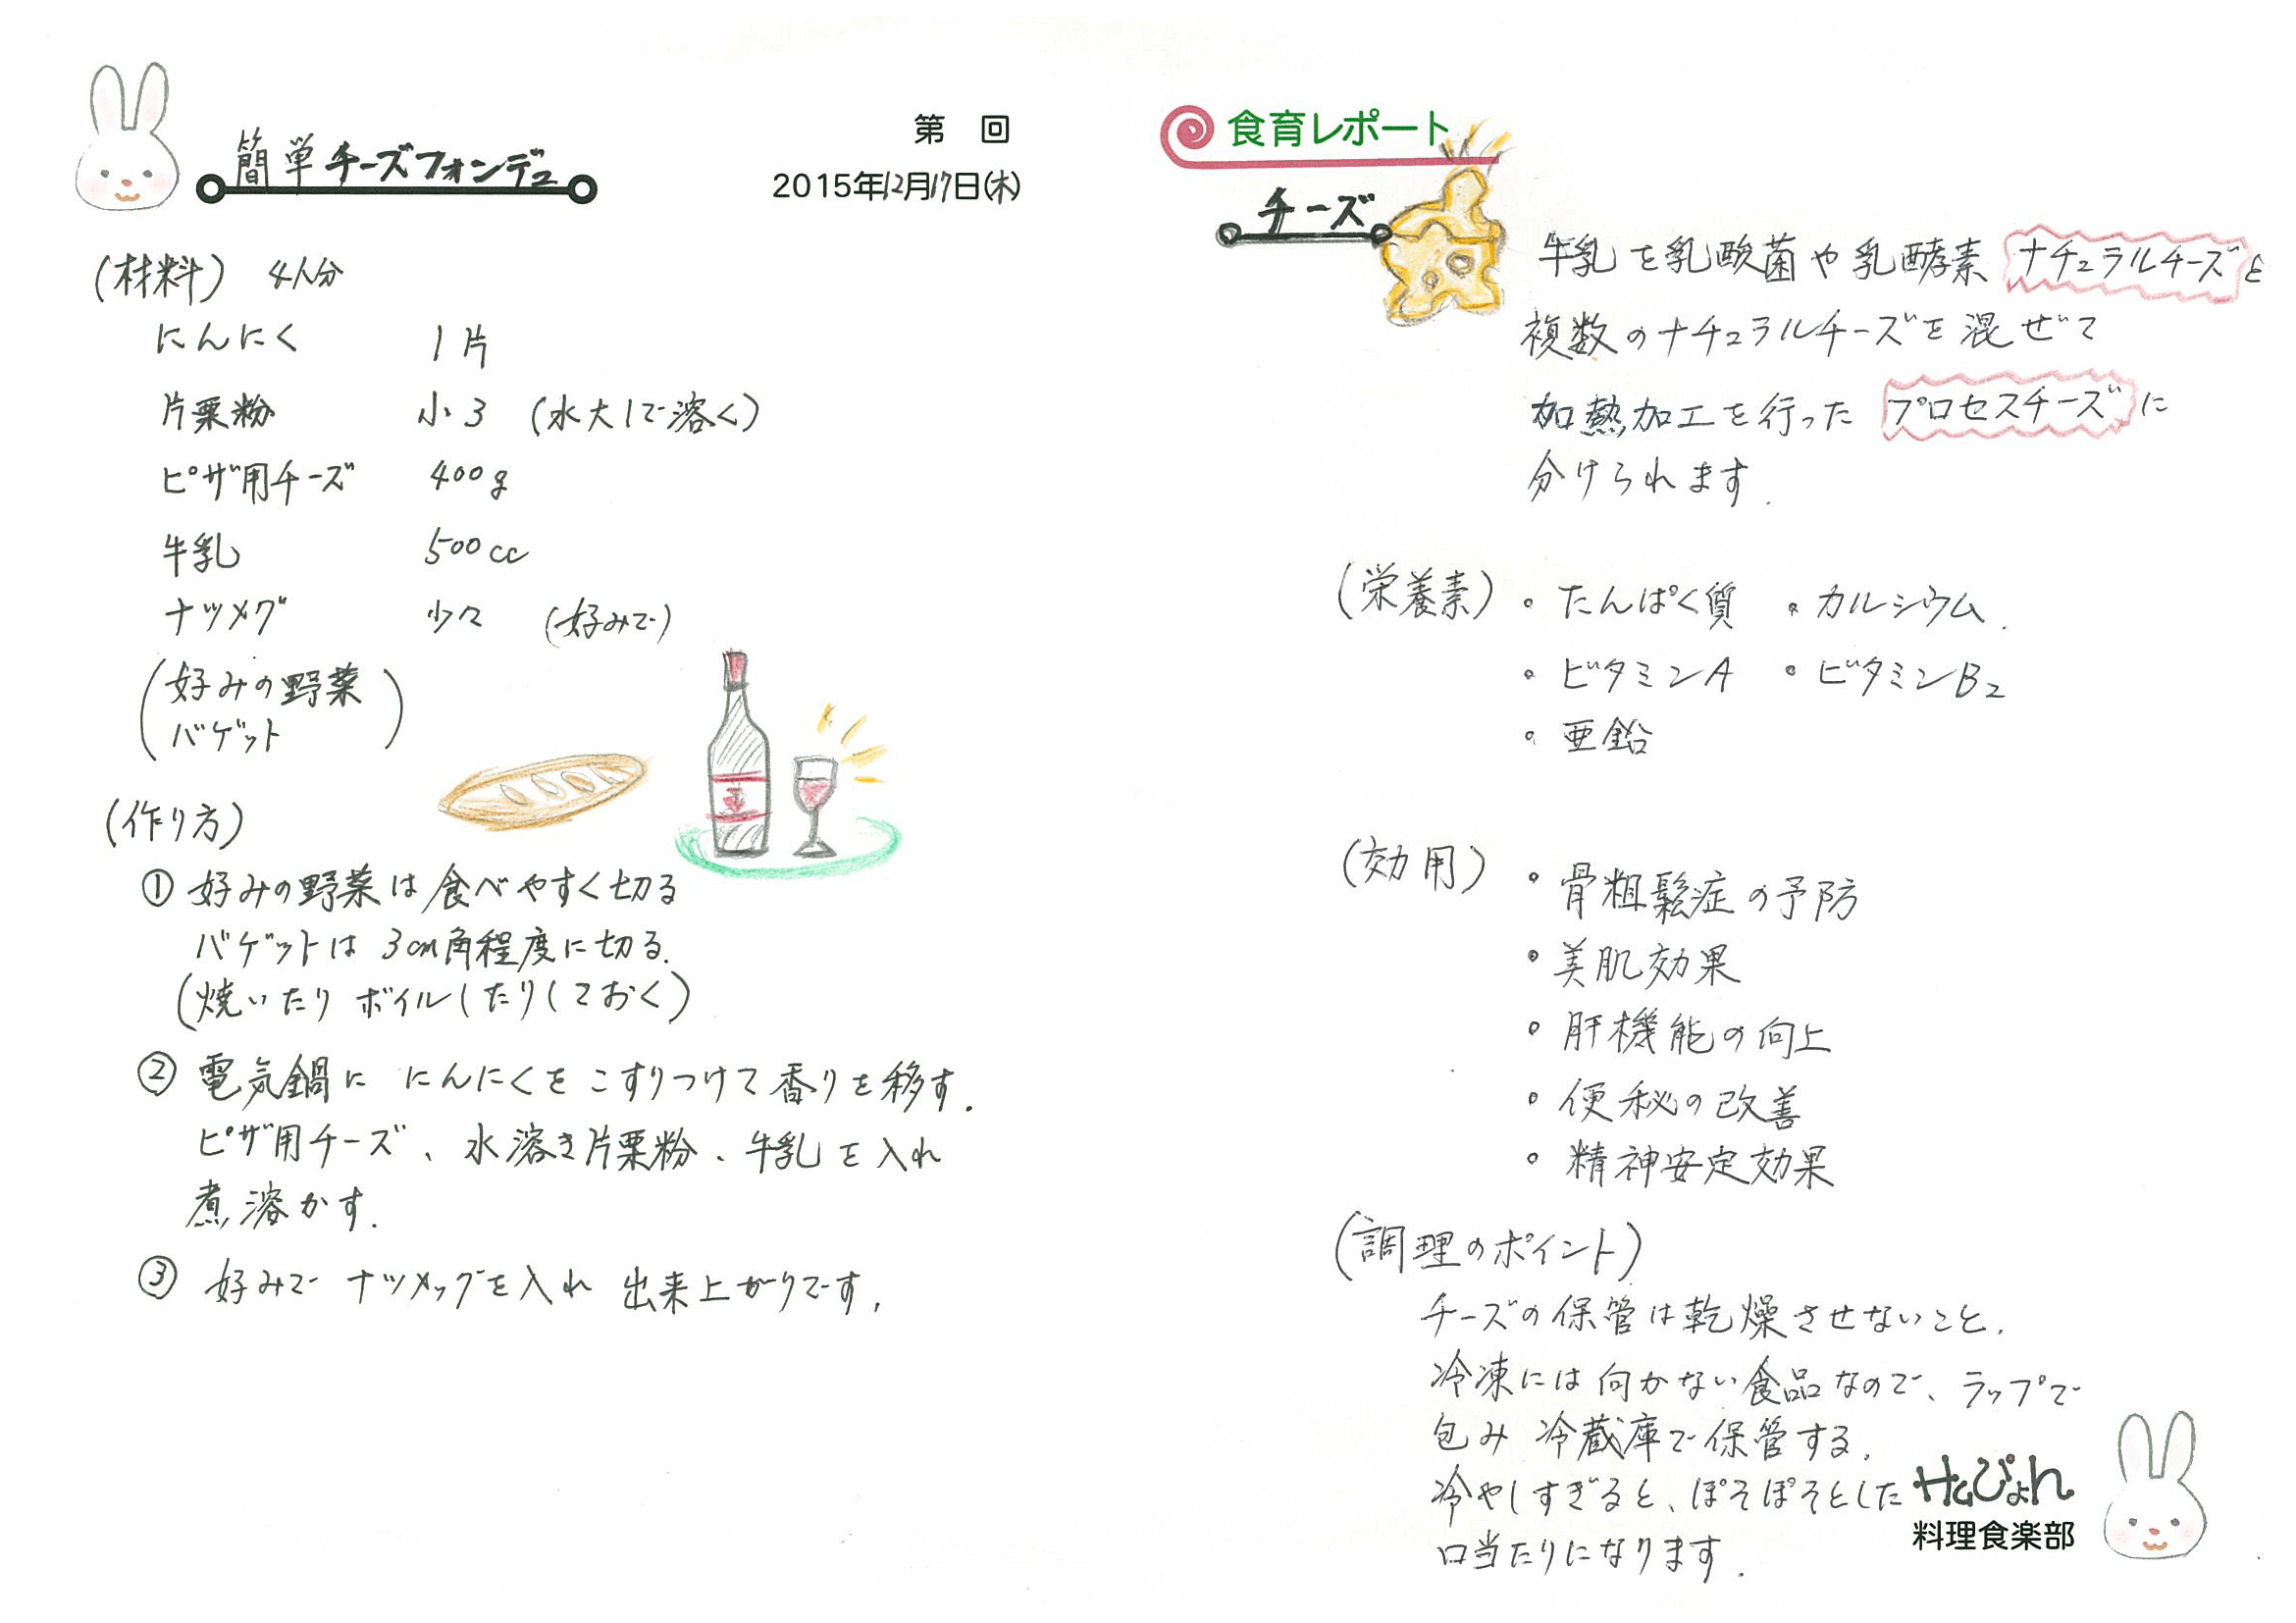 簡単チーズフォンデュ
第 回
2015年12月17日(木)
(材料) 4人分
にんにく 1片
片栗粉 小3 (水大1で溶く)
ピザ用チーズ 400g
牛乳 500cc
ナツメグ 少々 (好みで)
(好みの野菜
バゲット)
(作り方)
① 好みの野菜は食べやすく切る
バゲットは3cm角程度に切る.
(焼いたりボイルしたりしておく)
② 電気鍋に にんにくをこすりつけて香りを移す.
ピザ用チーズ、水溶き片栗粉、牛乳を入れ
煮溶かす.
③ 好みで ナツメッグを入れ 出来上がりです.
食育レポート
チーズ
牛乳を乳酸菌や乳酵素 ナチュラルチーズと
複数のナチュラルチーズを混ぜて
加熱加工を行った プロセスチーズに
分けられます.
(栄養素) ・たんぱく質 ・カルシウム.
・ビタミンA ・ビタミンB2
・亜鉛
(効用) ・骨粗鬆症の予防
・美肌効果
・肝機能の向上
・便秘の改善
・精神安定効果
(調理のポイント)
チーズの保管は乾燥させないこと.
冷凍には向かない食品なので、ラップで
包み 冷蔵庫で保管する.
冷やしすぎると、ぽそぽそとした
口当たりになります.
料理食楽部